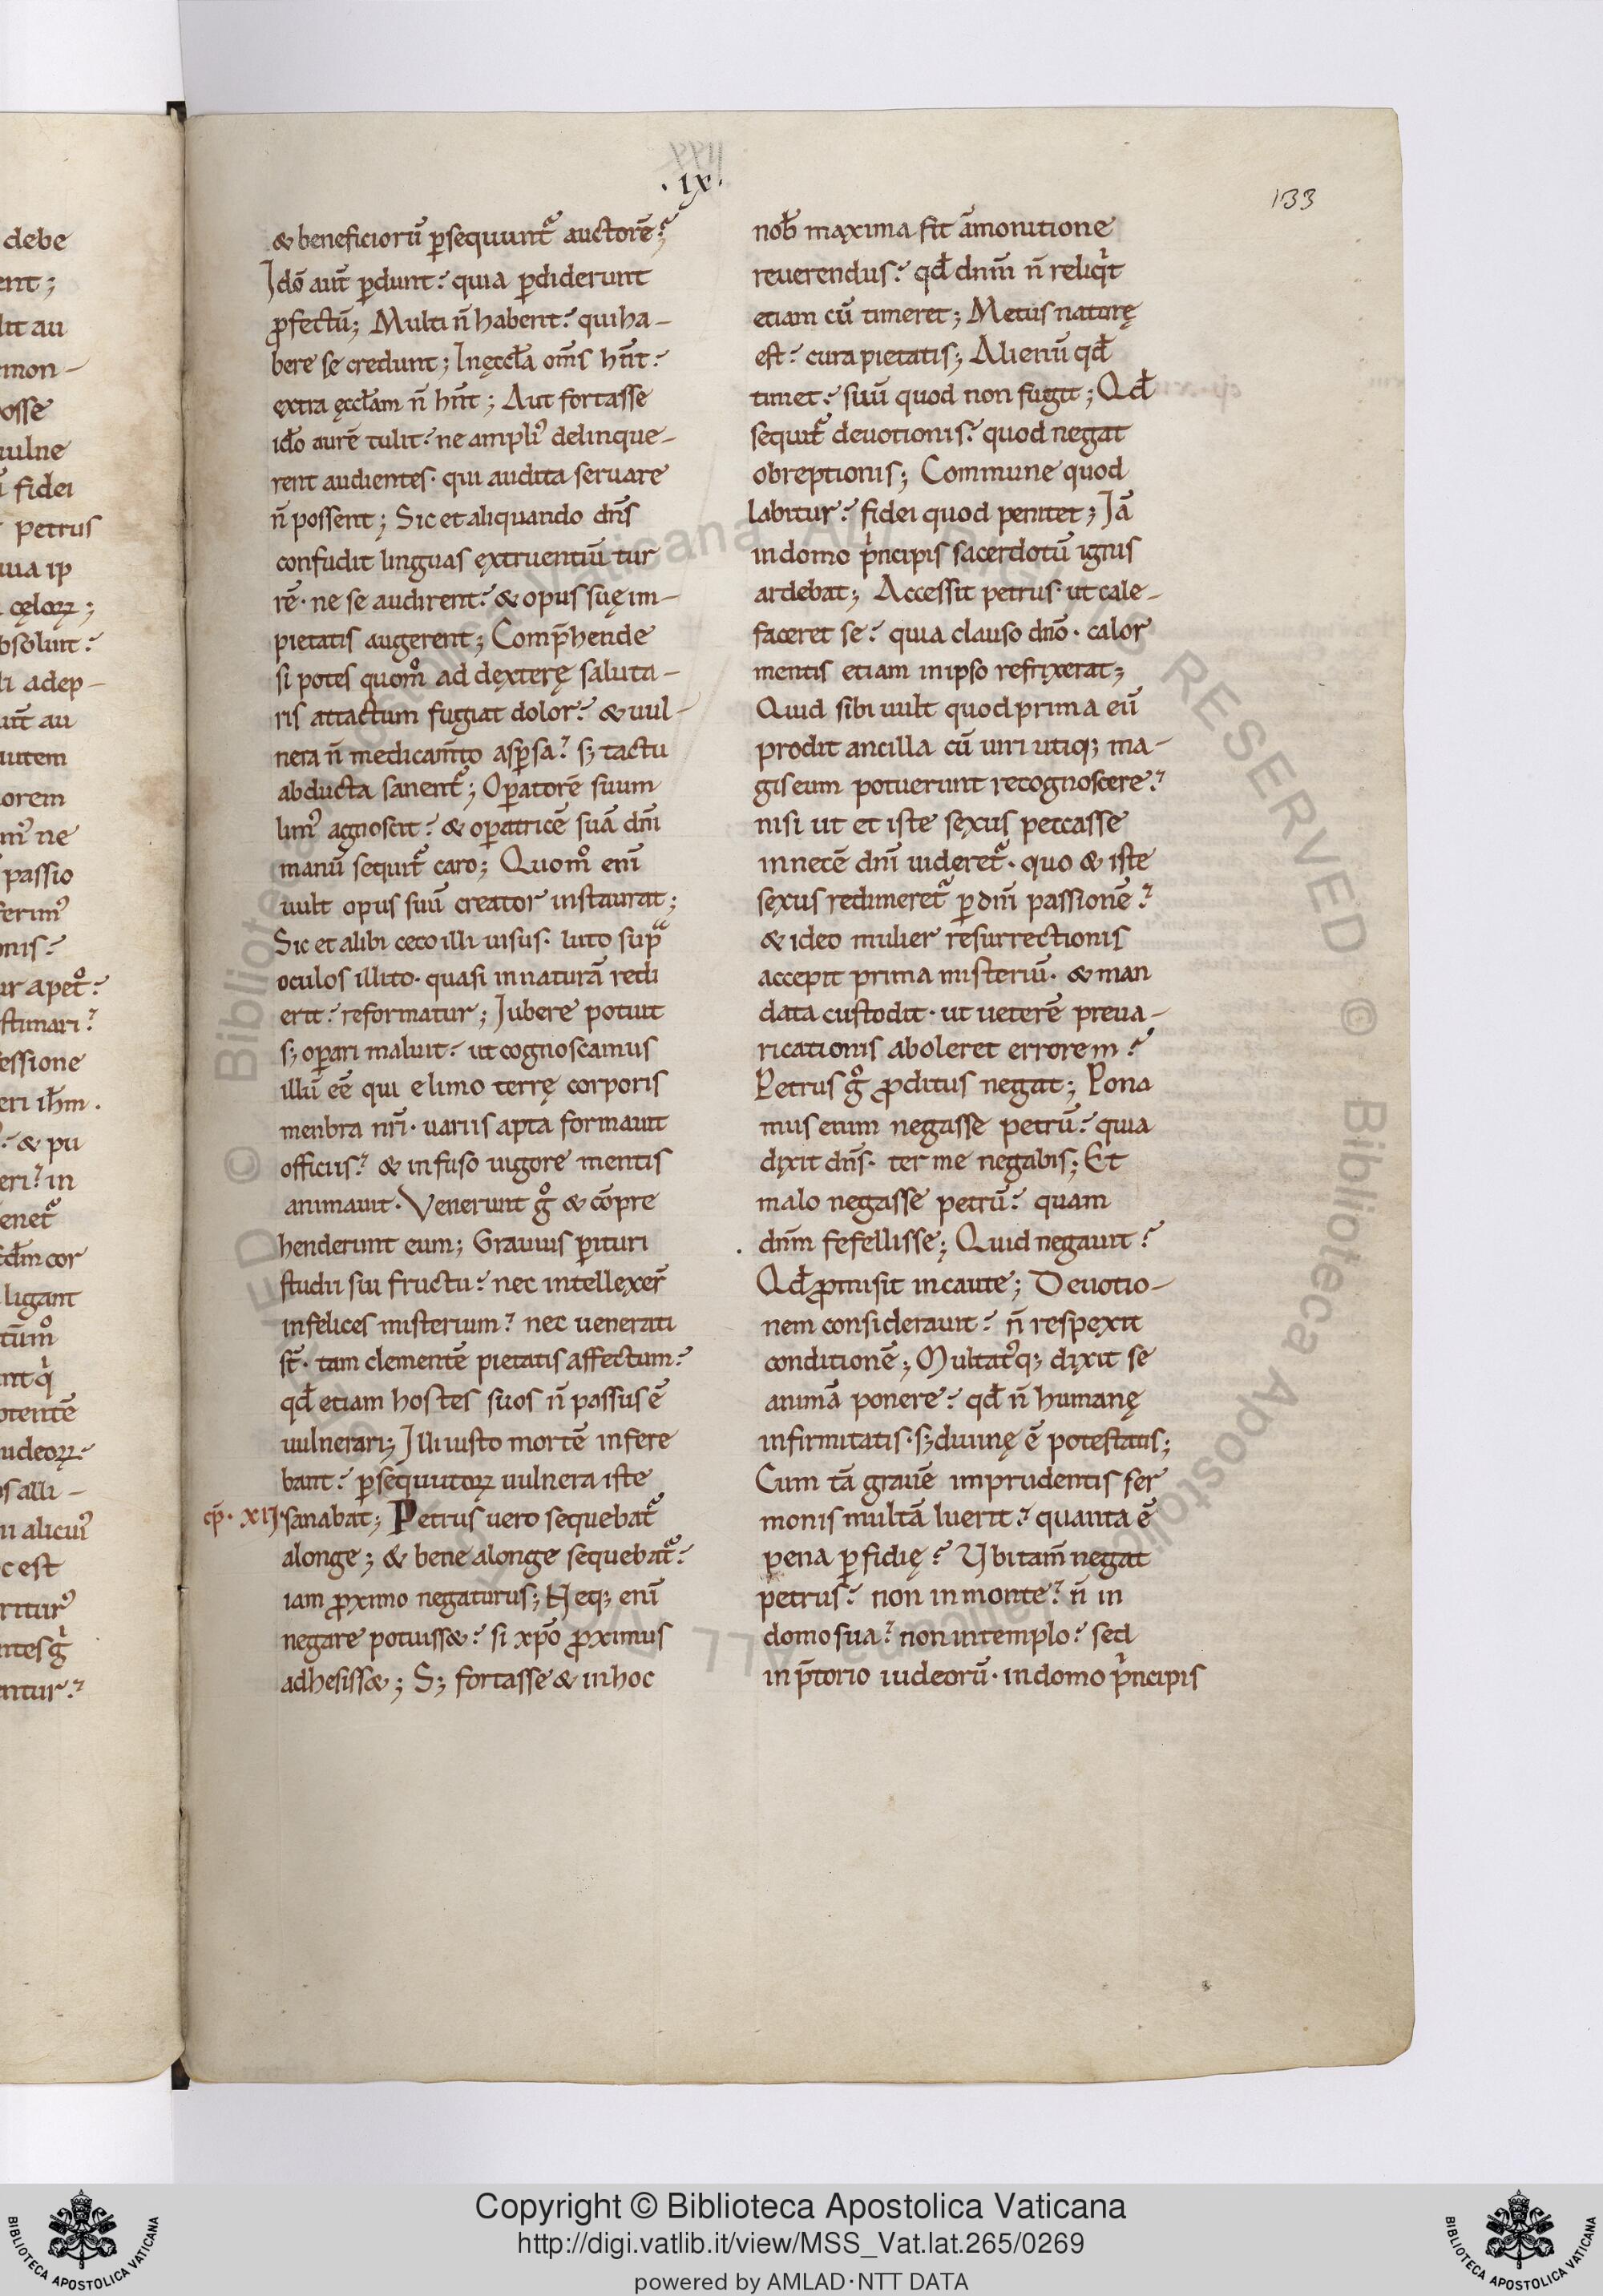 debe
ent;
lit au
mon-
osse
uulne
fidei
petrus
uia ip
cęloꝝ;
bsolunt?
li adep-
utem
orem
ne
passio
ferim᾽
onis?
stimari?
essione
eri ihm̄.
? & pu
eri? in
cor
ligant
otentē
iudeoꝝ?
alicui᾽
c est
.IX.
133
& beneficiorū p̱sequunt᷑ auctorē?
Idō aut̄ p̱dunt? quia p̱diderunt
ꝓfectū; Multi n̄ habent? qui ha-
bere se credunt; In ęccła om̄s hn̄t?
ęxtra ęccłam n̄ hn̄t; Aut fortasse
idō aurē tulit? ne ampli᾽ delinque-
rent audientes· qui audita seruare
n̄ possent; Sic et aliquando dn̄s
confudit linguas extruentiū tur
rē· ne se audirent? & opus suę im-
pietatis augerent; Comp̄hende
si potes quom̊ ad dexterę saluta-
ris attactum fugiat dolor? & uul-
nera n̄ medicam̄to asp̱sa? s; tactu
abducta sanent᷑; Op̱atorē suum
lim᾽ agnoscit? & op̱atricē suā dn̄i
manū sequit᷑ caro; Quom̊ enī
uult opus suū creator instaurat;
Sic et alibi ceco illi uisus· luto sup̱ᵃ
oculos illito· quasi in naturā redi
erit? reformatur; Iubere potuit
s; op̱ari maluit? ut cognoscamus
illū eē qui e limo terrę corporis
menbra nr̄i· uariis apta formauit
officiis? & infuso uigore mentis
animauit· Venerunt g̊ & cōpre
henderunt eum; Grauius p̱ituri
studii sui fructu? nec intellexer̄
infelices misterium? nec uenerati
st̄· tam clementē pietatis affectum?
qđ etiam hostes suos n̄ passus ē
uulnerari; Illi iusto mortē infere
bant? p̱sequutoꝝ uulnera iste
cp̄· XII· sanabat; Petrus uero sequebat᷑
alonge; & bene alonge sequebat᷑?
iam ꝓximo negaturus; Neq; enī
negare potuiss&? si xp̄o ꝓximus
adhesiss&; S; fortasse & in hoc
nob̄ maxima sit āmonitione
reuerendus? qđ dnm̄ n̄ reliqͥt
etiam cū timeret; Metus naturę
est? cura pietatis; Alienū qđ
timet? suū quod non fugit; Qđ
sequit᷑ deuotionis? quod negat
obreptionis; Commune quod
labitur? fidei quod penitet; Iā
in domo pͥncipis sacerdotū ignis
ardebat; Accessit petrus· ut cale-
faceret se? quia clauso dn̄o· calor
mentis etiam in ipso refrixerat;
Quid sibi uult quod prima eū
prodit ancilla cū uiri utiq; ma-
gis eum potuerunt recognoscere?
nisi ut et iste sexus peccasse
in necē dn̄i uideret᷑· quo & iste
sexus redimeret᷑ p̱ dn̄i passionē?
& ideo mulier resurrectionis
accepit prima misteriū· & man
data custodit· ut ueterē preua-
ricationis aboleret errorem?
Petrus g̊ ꝓditus negat; Pona
mus enim negasse petrū? quia
dixit dn̄s· ter me negabis; Et
malo negasse petrū? quam
dnm̄ fefellisse; Quid negauit?
Qđ ꝓmisit incaute; Deuotio-
nem considerauit? n̄ respexit
conditionē; Multat᾽q; dixit se
animā ponere? qđ n̄ humanę
infirmitatis· s; diuinę ē potestatis;
Cum tā grauē imprudentis ser
monis multā luerit? quanta ē
pena p̱fidię? Vbi tam̄ negat
petrus? non in monte? n̄ in
domo sua? non in templo? sed
in p̄torio iudeorū· in domo pͥncipis
Copyright © Biblioteca Apostolica Vaticana
http://digi.vatlib.it/view/MSS_Vat.lat.265/0269
powered by AMLAD·NTT DATA
BIBLIOTECA APOSTOLICA VATICANA
BIBLIOTECA APOSTOLICA VATICANA